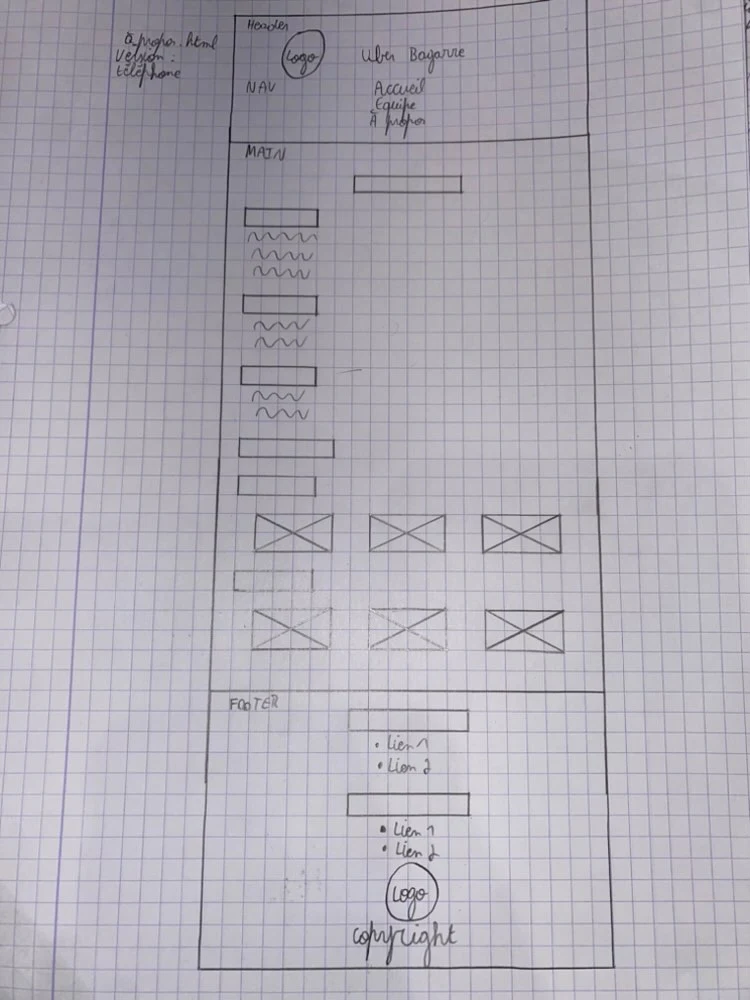 a_propos.html
Version :
téléphone
Header
Logo
Uber Bagarre
NAV
Accueil
Equipe
À propos
MAIN
FOOTER
• Lien 1
• Lien 2
• Lien 1
• Lien 2
Logo
copyright